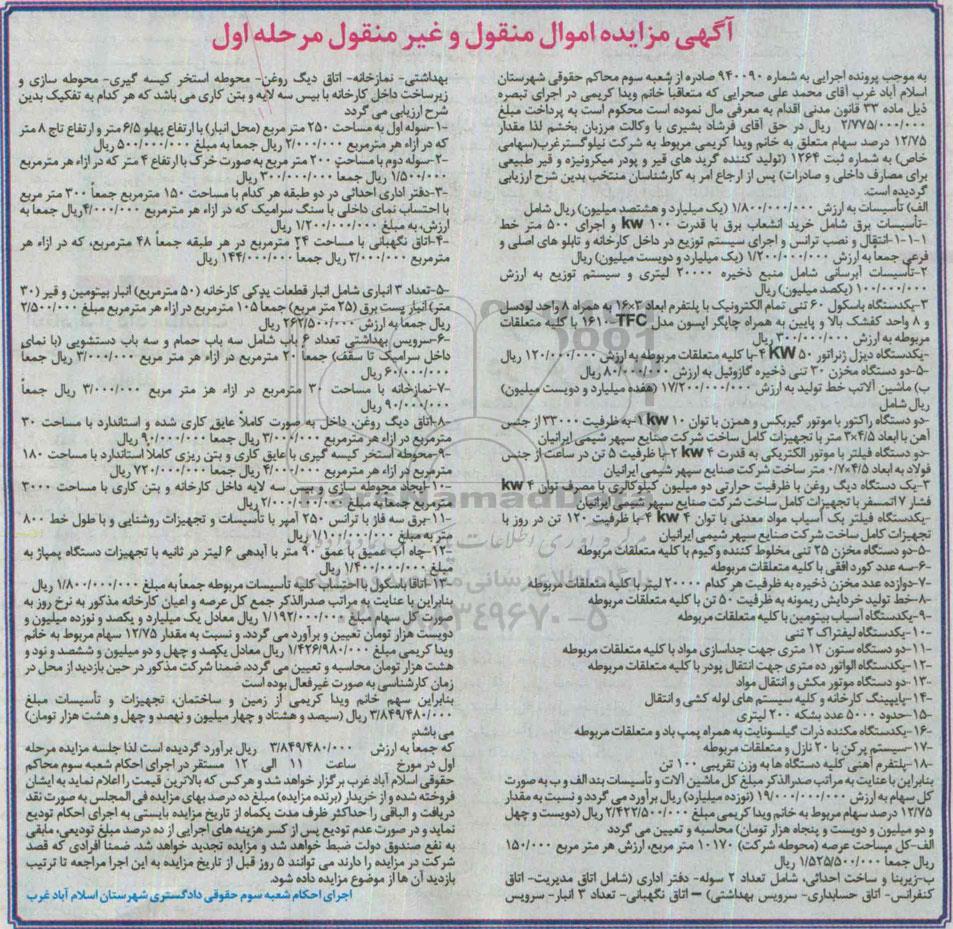 آگهی مزایده اموال منقول و غیر منقول مرحله اول
به موجب پرونده اجرایی به شماره ۹۴۰۰۹۰ صادره از شعبه سوم محاکم حقوقی شهرستان
اسلام آباد غرب آقای محمد علی صحرایی که متعاقباً خانم ویدا کریمی در اجرای تبصره
ذیل ماده ۳۳ قانون مدنی اقدام به معرفی مال نموده است محکوم است به پرداخت مبلغ
۲/۷۷۵/۰۰۰/۰۰۰ ریال در حق آقای فرشاد بشیری با وکالت مرزبان بخشم لذا مقدار
۱۲/۷۵ درصد سهام متعلق به خانم ویدا کریمی مربوط به شرکت نیلوگسترغرب(سهامی
خاص) به شماره ثبت ۱۲۶۴ (تولید کننده گرید های قیر و پودر میکرونیزه و قیر طبیعی
برای مصارف داخلی و صادرات) پس از ارجاع امر به کارشناسان منتخب بدین شرح ارزیابی
گردیده است.
الف) تأسیسات به ارزش ۱/۸۰۰/۰۰۰/۰۰۰ (یک میلیارد و هشتصد میلیون) ریال شامل
-تأسیسات برق شامل خرید انشعاب برق با قدرت ۱۰۰ kw و اجرای ۵۰۰ متر خط
۱-۱-۱-انتقال و نصب ترانس و اجرای سیستم توزیع در داخل کارخانه و تابلو های اصلی و
فرعی جمعاً به ارزش ۱/۲۰۰/۰۰۰/۰۰۰ (یک میلیارد و دویست میلیون) ریال
۲-تأسیسات آبرسانی شامل منبع ذخیره ۲۰۰۰۰ لیتری و سیستم توزیع به ارزش
۱۰۰/۰۰۰/۰۰۰ (یکصد میلیون) ریال
۳-یکدستگاه باسکول ۶۰ تنی تمام الکترونیک با پلتفرم ابعاد ۳×۱۶ به همراه ۸ واحد لودسل
و ۸ واحد کفشک بالا و پایین به همراه چاپگر اپسون مدل TFC ۱۶۱۰ با کلیه متعلقات
مربوطه به ارزش ۳۰۰/۰۰۰/۰۰۰ ریال
-یکدستگاه دیزل ژنراتور ۵۰ KW ۴-با کلیه متعلقات مربوطه به ارزش ۱۲۰/۰۰۰/۰۰۰ ریال
-۵-دو دستگاه مخزن ۳۰ تنی ذخیره گازوئیل به ارزش ۸۰/۰۰۰/۰۰۰ ریال
ب) ماشین آلاتب خط تولید به ارزش ۱۷/۲۰۰/۰۰۰/۰۰۰ (هفده میلیارد و دویست میلیون)
ریال شامل
-دو دستگاه راکتور با موتور گیربکس و همزن با توان ۱۰ kw ۱-به ظرفیت ۳۳۰۰۰ از جنس
آهن با ابعاد ۴/۵×۳ متر با تجهیزات کامل ساخت شرکت صنایع سپهر شیمی ایرانیان
-دو دستگاه فیلتر با موتور الکتریکی به قدرت ۴ kw ۲-با ظرفیت ۵ تن در ساعت از جنس
فولاد به ابعاد ۴/۵×۰/۷ متر ساخت شرکت صنایع سپهر شیمی ایرانیان
۳-یک دستگاه دیگ روغن با ظرفیت حرارتی دو میلیون کیلوکالری با مصرف توان ۴ kw
فشار ۱۷اتمسفر با تجهیزات کامل ساخت شرکت صنایع سپهر شیمی ایرانیان
-یکدستگاه فیلتر یک آسیاب مواد معدنی با توان ۴ kw ۴-با ظرفیت ۱۲۰ تن در روز با
تجهیزات کامل ساخت شرکت صنایع سپهر شیمی ایرانیان
-۵-دو دستگاه مخزن ۲۵ تنی مخلوط کننده وکیوم با کلیه متعلقات مربوطه
-۶-سه عدد کورد افقی با کلیه متعلقات مربوطه
-۷-دوازده عدد مخزن ذخیره به ظرفیت هر کدام ۲۰۰۰۰ لیتر با کلیه متعلقات مربوطه
-۸-خط تولید خردایش ریمونه به ظرفیت ۵۰ تن با کلیه متعلقات مربوطه
-۹-یکدستگاه آسیاب بیتومین با کلیه متعلقات مربوطه
-۱۰-یکدستگاه لیفتراک ۲ تنی
-۱۱-دو دستگاه ستون ۱۲ متری جهت جداسازی مواد با کلیه متعلقات مربوطه
-۱۲-یکدستگاه الواتور ده متری جهت انتقال پودر با کلیه متعلقات مربوطه
-۱۳-دو دستگاه موتور مکش و انتقال مواد
-۱۴-پایپینگ کارخانه و کلیه سیستم های لوله کشی و انتقال
-۱۵-حدود ۵۰۰۰ عدد بشکه ۲۰۰ لیتری
-۱۶-یکدستگاه مکنده ذرات گیلسونایت به همراه پمپ باد و متعلقات مربوطه
-۱۷-سیستم پرکن با ۲۰ نازل و متعلقات مربوطه
-۱۸-پلتفرم آهنی کلیه دستگاه ها به وزن تقریبی ۱۰۰ تن
بنابراین با عنایت به مراتب صدرالذکر مبلغ کل ماشین آلات و تأسیسات بند الف و ب به صورت
کل سهام به ارزش ۱۹/۰۰۰/۰۰۰/۰۰۰ (نوزده میلیارد) ریال برآورد می گردد و نسبت به مقدار
۱۲/۷۵ درصد سهام مربوط به خانم ویدا کریمی مبلغ ۲/۴۲۲/۵۰۰/۰۰۰ ریال (دویست و چهل
و دو میلیون و دویست و پنجاه هزار تومان) محاسبه و تعیین می گردد
الف-کل مساحت عرصه (محوطه شرکت) ۱۰۱۷۰ متر مربع، ارزش هر متر مربع ۱۵۰/۰۰۰
ریال جمعاً ۱/۵۲۵/۵۰۰/۰۰۰ ریال
ب-زیربنا و ساخت احداثی، شامل تعداد ۲ سوله- دفتر اداری (شامل اتاق مدیریت- اتاق
کنفرانس- اتاق حسابداری- سرویس بهداشتی) – اتاق نگهبانی- تعداد ۳ انبار- سرویس
بهداشتی- نمازخانه- اتاق دیگ روغن- محوطه استخر کیسه گیری- محوطه سازی و
زیرساخت داخل کارخانه با بیس سه لایه و بتن کاری می باشد که هر کدام به تفکیک بدین
شرح ارزیابی می گردد
-۱-سوله اول به مساحت ۲۵۰ متر مربع (محل انبار) با ارتفاع پهلو ۶/۵ متر و ارتفاع تاج ۸ متر
که در ازاء هر مترمربع ۲/۰۰۰/۰۰۰ ریال جمعاً به مبلغ ۵۰۰/۰۰۰/۰۰۰ ریال
-۲-سوله دوم با مساحت ۲۰۰ متر مربع به صورت خرک با ارتفاع ۴ متر که در ازاء هر مترمربع
۱/۵۰۰/۰۰۰ ریال جمعاً ۳۰۰/۰۰۰/۰۰۰ ریال
-۳-دفتر اداری احداثی در دو طبقه هر کدام با مساحت ۱۵۰ مترمربع جمعاً ۳۰۰ متر مربع
با احتساب نمای داخلی با سنگ سرامیک که در ازاء هر مترمربع ۴/۰۰۰/۰۰۰ریال جمعاً به
ارزش، به مبلغ ۱/۲۰۰/۰۰۰/۰۰۰ ریال
-۴-اتاق نگهبانی با مساحت ۲۴ مترمربع در هر طبقه جمعاً ۴۸ مترمربع، که در ازاء هر
مترمربع ۳/۰۰۰/۰۰۰ ریال جمعاً ۱۴۴/۰۰۰/۰۰۰ ریال
-۵-تعداد ۳ انباری شامل انبار قطعات یدکی کارخانه (۵۰ مترمربع) انبار بیتومین و قیر (۳۰
متر) انبار پست برق (۲۵ متر مربع) جمعاً ۱۰۵ مترمربع در ازاء هر مترمربع مبلغ ۲/۵۰۰/۰۰۰
ریال جمعاً به ارزش ۲۶۲/۵۰۰/۰۰۰ ریال
-۶-سرویس بهداشتی تعداد ۶ باب شامل سه باب حمام و سه باب دستشویی (با نمای
داخل سرامیک تا سقف) جمعاً ۲۰ مترمربع در ازاء هر متر مربع ۳/۰۰۰/۰۰۰ ریال جمعاً
۶۰/۰۰۰/۰۰۰ ریال
-۷-نمازخانه با مساحت ۳۰ مترمربع در ازاء هر متر مربع ۳/۰۰۰/۰۰۰ ریال جمعاً
۹۰/۰۰۰/۰۰۰ ریال
-۸-اتاق دیگ روغن، داخل به صورت کاملاً عایق کاری شده و استاندارد با مساحت ۳۰
مترمربع در ازاء هر مترمربع ۳/۰۰۰/۰۰۰ ریال جمعاً ۹۰/۰۰۰/۰۰۰ ریال
-۹-محوطه استخر کیسه گیری با عایق کاری و بتن ریزی کاملاً استاندارد با مساحت ۱۸۰
مترمربع در ازاء هر مترمربع ۴/۰۰۰/۰۰۰ ریال جمعاً ۷۲۰/۰۰۰/۰۰۰ ریال
-۱۰-ایجاد محوطه سازی و بیس سه لایه داخل کارخانه و بتن کاری با مساحت ۳۰۰۰
مترمربع جمعاً به مبلغ ۲/۰۰۰/۰۰۰/۰۰۰ ریال
-۱۱-برق سه فاز با ترانس ۲۵۰ آمپر با تأسیسات و تجهیزات روشنایی و با طول خط ۸۰۰
متر به مبلغ ۱/۱۰۰/۰۰۰/۰۰۰ ریال
-۱۲-چاه آب عمیق با عمق ۹۰ متر با آبدهی ۶ لیتر در ثانیه با تجهیزات دستگاه پمپاژ به
مبلغ ۱/۴۰۰/۰۰۰/۰۰۰ ریال
-۱۳-اتاق باسکول با احتساب کلیه تأسیسات مربوطه جمعاً به مبلغ ۱/۸۰۰/۰۰۰/۰۰۰ ریال
بنابراین با عنایت به مراتب صدرالذکر جمع کل عرصه و اعیان کارخانه مذکور به نرخ روز به
صورت کل سهام مبلغ ۱/۱۹۲/۰۰۰/۰۰۰ ریال معادل یک میلیارد و یکصد و نوزده میلیون و
دویست هزار تومان تعیین و برآورد می گردد. و نسبت به مقدار ۱۲/۷۵ سهام مربوط به خانم
ویدا کریمی مبلغ ۱/۴۲۶/۹۸۰/۰۰۰ ریال معادل یکصد و چهل و دو میلیون و ششصد و نود و
هشت هزار تومان محاسبه و تعیین می گردد. ضمناً شرکت مذکور در حین بازدید از محل در
زمان کارشناسی به صورت غیرفعال بوده است
بنابراین سهم خانم ویدا کریمی از زمین و ساختمان، تجهیزات و تأسیسات مبلغ
۳/۸۴۹/۴۸۰/۰۰۰ ریال (سیصد و هشتاد و چهار میلیون و نهصد و چهل و هشت هزار تومان)
می باشد.
که جمعاً به ارزش ۳/۸۴۹/۴۸۰/۰۰۰ ریال برآورد گردیده است لذا جلسه مزایده مرحله
اول در مورخ ساعت ۱۱ الی ۱۲ مستقر در اجرای احکام شعبه سوم محاکم
حقوقی اسلام آباد غرب برگزار خواهد شد و هرکس که بالاترین قیمت را اعلام نماید به ایشان
فروخته شده و از خریدار (برنده مزایده) مبلغ ده درصد بهای مزایده فی المجلس به صورت نقد
دریافت و الباقی را حداکثر ظرف مدت یکماه از تاریخ مزایده بایستی به اجرای احکام تودیع
نماید و در صورت عدم تودیع پس از کسر هزینه های اجرایی از ده درصد مبلغ تودیعی، مابقی
به نفع صندوق دولت ضبط خواهد شد و مزایده تجدید خواهد شد. ضمناً افرادی که قصد
شرکت در مزایده را دارند می توانند ۵ روز قبل از تاریخ مزایده به این اجرا مراجعه تا ترتیب
بازدید آن ها از موضوع مزایده داده شود.
اجرای احکام شعبه سوم حقوقی دادگستری شهرستان اسلام آباد غرب
ParsNamadData